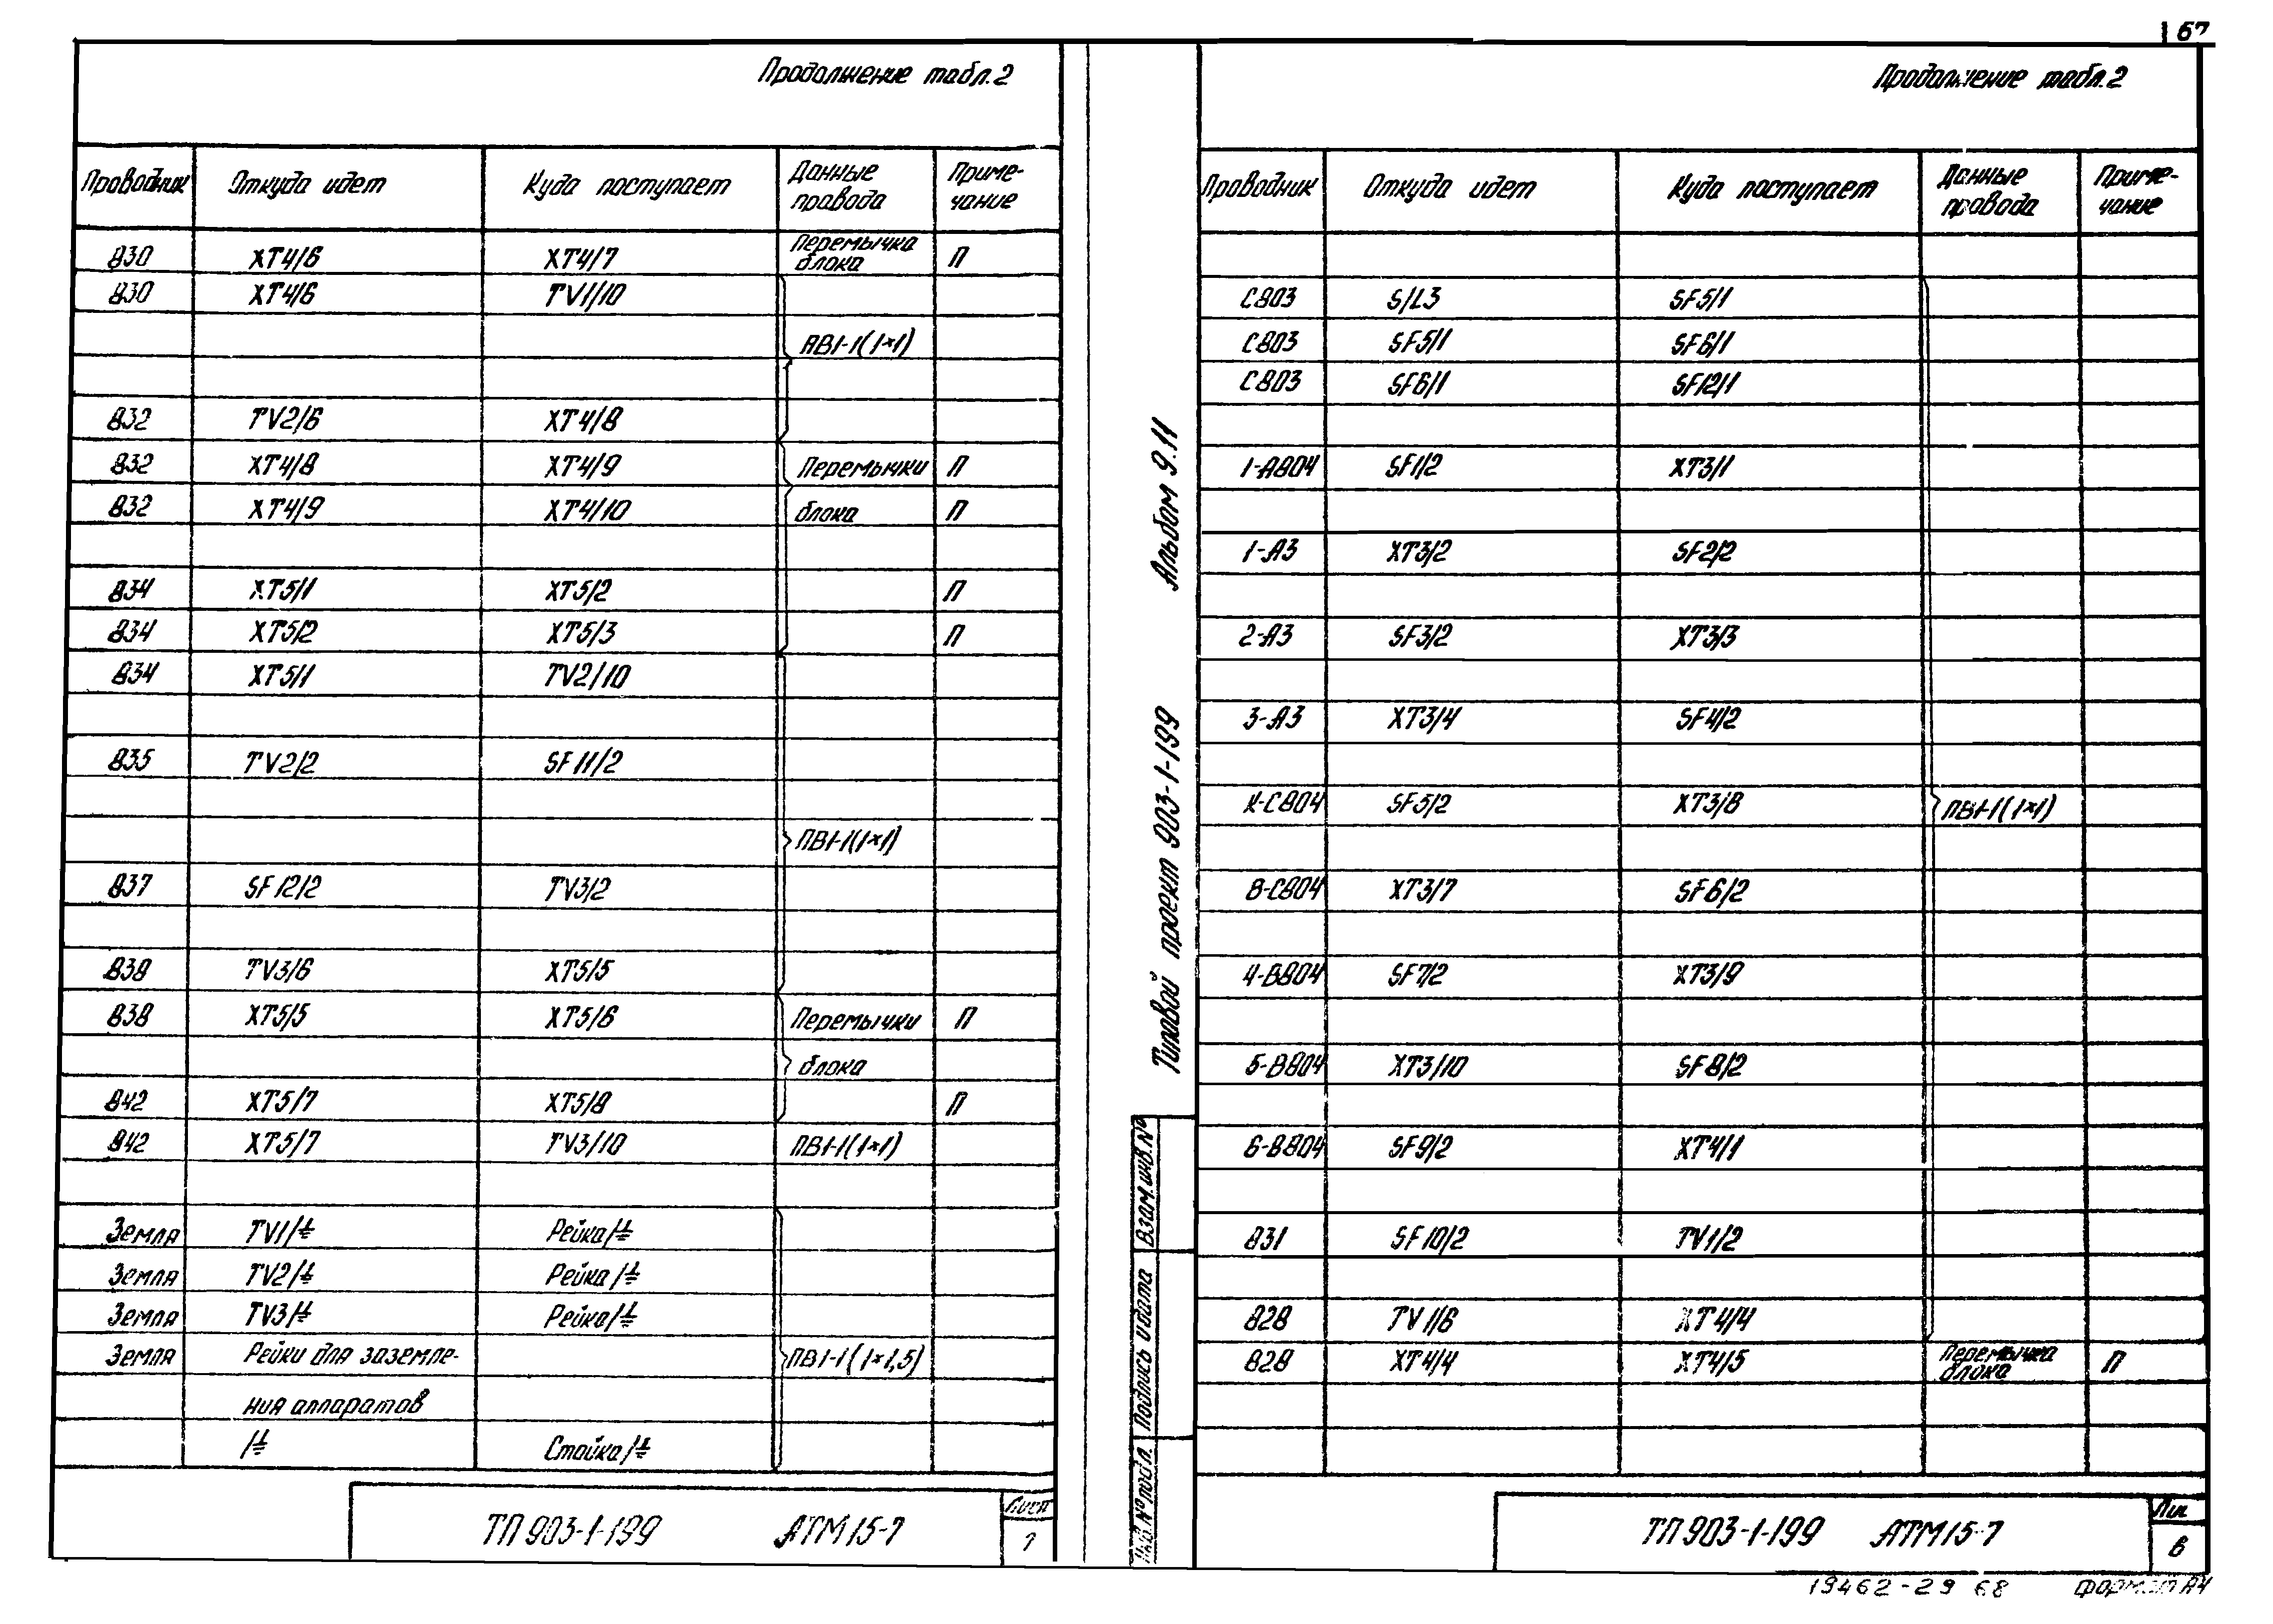 67
Продолжение табл.2
Проводник Откуда идет Куда поступает Данные провода Приме-чание
830 XT4/6 XT4/7 Перемычка блока П
830 XT4/6 TV1/10
ПВ1-1(1×1)
832 TV2/6 XT4/8
832 XT4/8 XT4/9 Перемычки П
832 XT4/9 XT4/10 блока П
834 XT5/1 XT5/2 П
834 XT5/2 XT5/3 П
834 XT5/1 TV2/10
835 TV2/2 SF11/2
ПВ1-1(1×1)
837 SF12/2 TV3/2
838 TV3/6 XT5/5
838 XT5/5 XT5/6 Перемычки П
блока
842 XT5/7 XT5/8 П
842 XT5/7 TV3/10 ПВ1-1(1×1)
Земля TV1/⏚ Рейка/⏚
Земля TV2/⏚ Рейка/⏚
Земля TV3/⏚ Рейка/⏚
Земля Рейки для заземле- ПВ1-1(1×1,5)
ния аппаратов
/⏚ Стойка/⏚
ТП 903-1-199 АТМ15-7
Лист
7
Альбом 9.11
Типовой проект 903-1-199
Взам.инв.№
Подпись и дата
Инв.№ подл.
Продолжение табл.2
Проводник Откуда идет Куда поступает Данные провода Приме-чание
C803 S/L3 SF5/1
C803 SF5/1 SF6/1
C803 SF6/1 SF12/1
1-A804 SF1/2 XT3/1
1-A3 XT3/2 SF2/2
2-A3 SF3/2 XT3/3
3-A3 XT3/4 SF4/2
К-C804 SF5/2 XT3/8 ПВ1-1(1×1)
8-C804 XT3/7 SF6/2
4-B804 SF7/2 XT3/9
5-B804 XT3/10 SF8/2
6-B804 SF9/2 XT4/1
831 SF10/2 TV1/2
828 TV1/6 XT4/4
828 XT4/4 XT4/5 Перемычка блока П
ТП 903-1-199 АТМ15-7
6
19462-29 68 формат А4